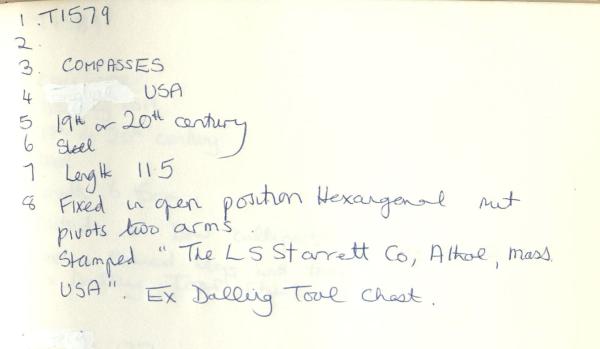 1. T1579
2.
3. COMPASSES
4 USA
5 19th or 20th century
6 Steel
7 Length 11.5
8 Fixed in open position Hexargenal nut
pivots two arms.
Stamped "The L S Starrett Co, Athol, Mass.
USA". Ex Dalling Tool Chest.